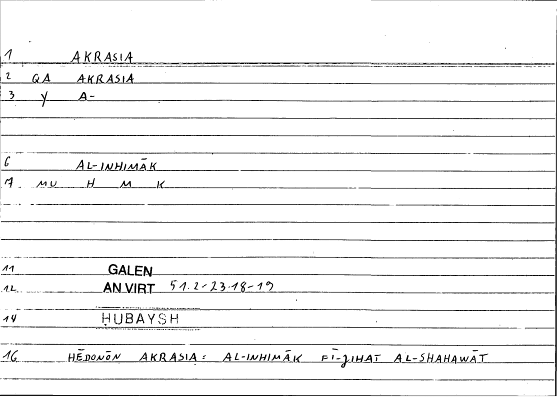 1 AKRASIA
2 QA AKRASIA
3 Y A-
6 AL-INHIMĀK
7 MU H M K
11 GALEN
12 AN VIRT 51.2-23.18-19
14 ḤUBAYSH
16 HĒDONŌN AKRASIA: AL-INHIMĀK FĪ-JIHAT AL-SHAHAWĀT